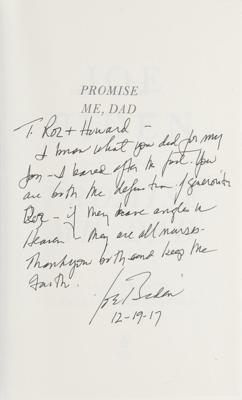 PROMISE
ME, DAD
To Roz + Howard –
I know what you did for my
Son – I learned after the fact. You
are both the definition of generosity
Roz – if they have angles in
Heaven – they are all nurses –
Thank you both and keep the
Faith.
Joe Biden
12-19-17